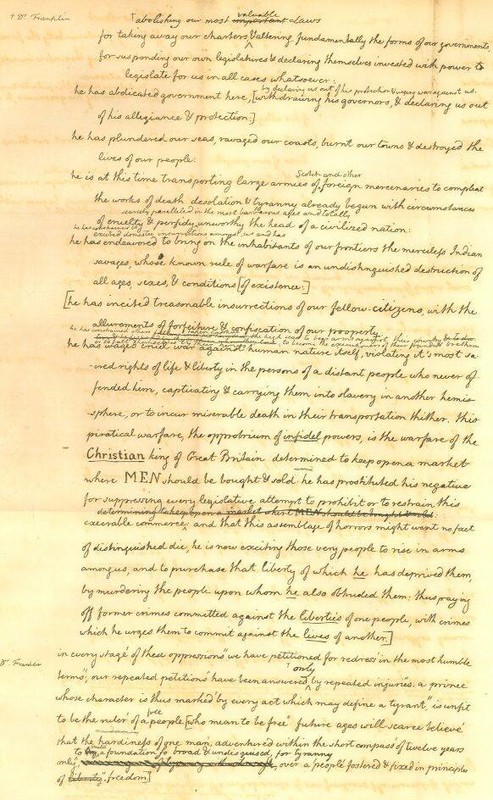 † Dr. Franklin
† abolishing our most important valuable Laws
for taking away our charters, & altering fundamentally the forms of our governments,
for suspending our own legislatures & declaring themselves invested with power to
legislate for us in all cases whatsoever:
by declaring us out of his protection & waging war against us.
he has abdicated government here, [withdrawing his governors, & declaring us out
of his allegiance & protection:]
he has plundered our seas, ravaged our coasts, burnt our towns & destroyed the
lives of our people:
Scotch and other
he is at this time transporting large armies of foreign mercenaries to compleat
the works of death desolation & tyranny already begun with circumstances
scarcely paralleled in the most barbarous ages and totally
of cruelty & perfidy unworthy the head of a civilized nation:
excited domestic insurrections amongst us and has
he has endeavored to bring on the inhabitants of our frontiers the merciless Indian
savages, whose known rule of warfare is an undistinguished destruction of
all ages, sexes, & conditions [of existence:]
[he has incited treasonable insurrections of our fellow-citizens, with the
allurements of forfeiture & confiscation of our property:
he has waged cruel war against human nature itself, violating it's most sa-
-cred rights of life & liberty in the persons of a distant people who never of-
fended him, captivating & carrying them into slavery in another hemis-
-sphere, or to incur miserable death in their transportation thither. this
piratical warfare, the opprobrium of infidel powers, is the warfare of the
Christian king of Great Britain determined to keep open a market
where MEN should be bought & sold he has prostituted his negative
for suppressing every legislative attempt to prohibit or to restrain this
determining to keep open a market where MEN should be bought & sold:
execrable commerce: and that this assemblage of horrors might want no fact
of distinguished die, he is now exciting those very people to rise in arms
among us, and to purchase that liberty of which he has deprived them,
by murdering the people upon whom he also obtruded them: thus paying
off former crimes committed against the liberties of one people, with crimes
which he urges them to commit against the lives of another.]
in every stage of these oppressions we have petitioned for redress in the most humble
Dr. Franklin
only
terms; our repeated petitions have been answered by repeated injuries. a prince
whose character is thus marked by every act which may define a tyrant, is unfit
free
to be the ruler of a people [who mean to be free. future ages will scarce believe
that the hardiness of one man, adventured within the short compass of twelve years
to a foundation so broad & undisguised, for tyranny
only, over a people fostered & fixed in principles
of liberty freedom]